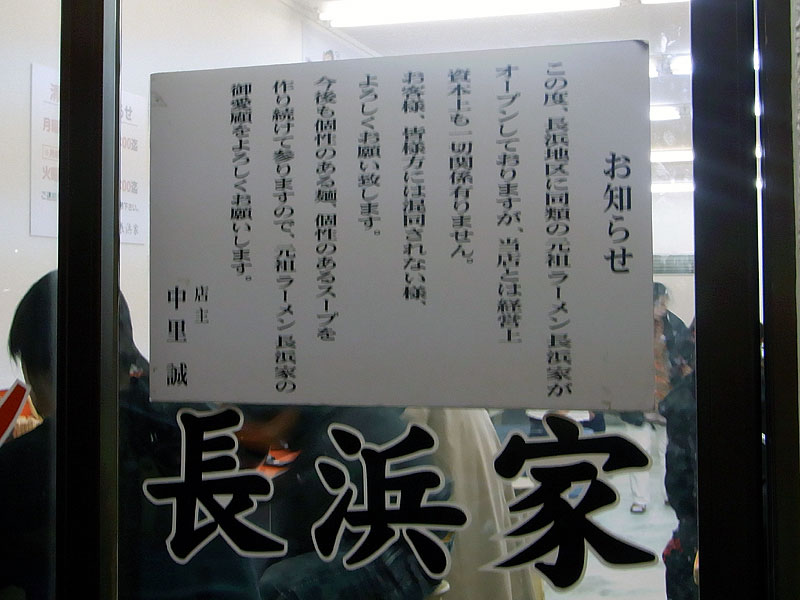 お知らせ
この度、長浜地区に同類の元祖ラーメン長浜家が
オープンしておりますが、当店とは経営上
資本上も一切関係有りません。
お客様、皆様方には混同されない様、
よろしくお願い致します。
今後も個性のある麺、個性のあるスープを
作り続けて参りますので、元祖ラーメン長浜家の
御愛顧をよろしくお願いします。
店主
中里 誠
長浜家